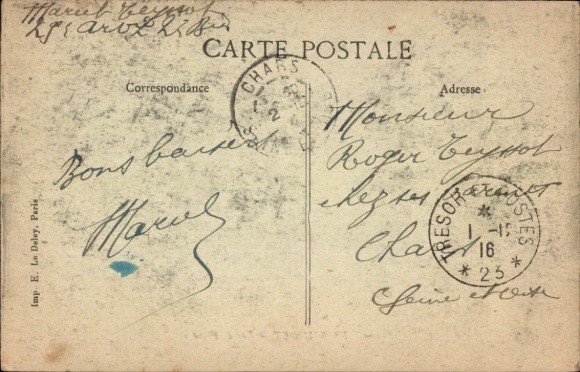 Marcel Teyssot
CARTE POSTALE
Correspondance
Adresse
CHARS
Bons baisers
Marcel
Monsieur
Roger Teyssot
chez ses parents
Chars
Seine et Oise
TRESOR ET POSTES
1 -
16
* 23 *
Imp. E. Le Deley, Paris